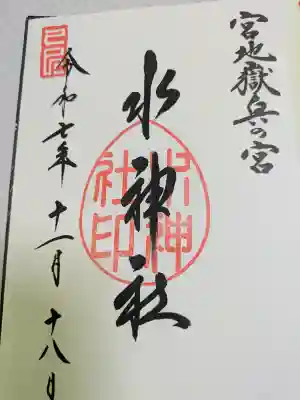 宮地嶽兵の宮
水神社
水神
社印
令和七年 十一月 十八日